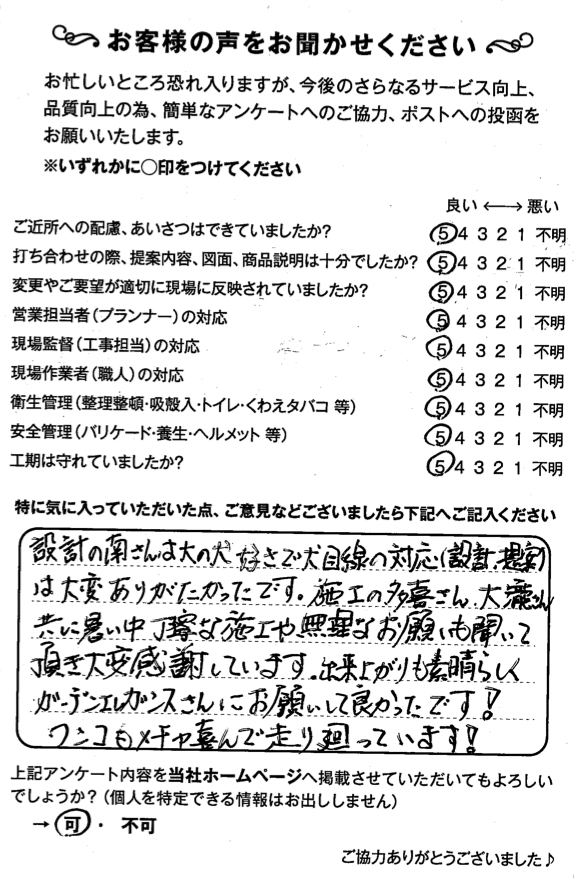 お客様の声をお聞かせください
お忙しいところ恐れ入りますが、今後のさらなるサービス向上、
品質向上の為、簡単なアンケートへのご協力、ポストへの投函を
お願いいたします。
※いずれかに○印をつけてください
良い ←→ 悪い
ご近所への配慮、あいさつはできていましたか? 5 4 3 2 1 不明
打ち合わせの際、提案内容、図面、商品説明は十分でしたか? 5 4 3 2 1 不明
変更やご要望が適切に現場に反映されていましたか? 5 4 3 2 1 不明
営業担当者(プランナー)の対応 5 4 3 2 1 不明
現場監督(工事担当)の対応 5 4 3 2 1 不明
現場作業者(職人)の対応 5 4 3 2 1 不明
衛生管理(整理整頓・吸殻入・トイレ・くわえタバコ 等) 5 4 3 2 1 不明
安全管理(バリケード・養生・ヘルメット 等) 5 4 3 2 1 不明
工期は守れていましたか? 5 4 3 2 1 不明
特に気に入っていただいた点、ご意見などございましたら下記へご記入ください
設計の南さんは大の犬好きで犬目線の対応(設計、提案)
は大変ありがたかったです。施工の多喜さん、大瀧さん
共に暑い中丁寧な施工や無理なお願いも聞いて
頂き大変感謝しています。出来上がりも素晴らしく
ガーデンエレガンスさんにお願いして良かったです!
ワンコもメチャ喜んで走り廻っています!
上記アンケート内容を当社ホームページへ掲載させていただいてもよろしい
でしょうか?(個人を特定できる情報はお出ししません)
→ 可 ・ 不可
ご協力ありがとうございました♪